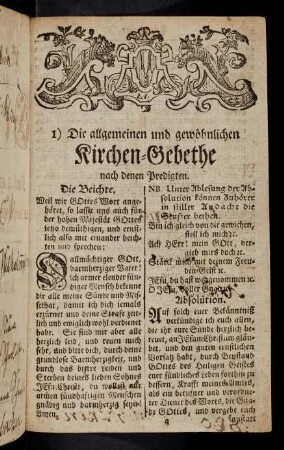 1) Die allgemeinen und gewöhnlichen
Kirchen-Gebethe
nach denen Predigten.
Die Beichte.
Weil wir GOttes Wort ange-
höret, so lasset uns auch für
der hohen Majestät GOttes
ietzo demüthigen, und ernst-
lich also mit einander beich-
ten und sprechen:
Allmächtiger GOtt,
barmhertziger Vater!
ich armer elender sündi-
ger Mensch bekenne
dir alle meine Sünde und Mis-
sethat, damit ich dich iemals
erzürnet und deine Strafe zeit-
lich und ewiglich wohl verdienet
habe. Sie sind mir aber alle
hertzlich leid, und reuen mich
sehr, und bitte dich, durch deine
grundlose Barmhertzigkeit, und
durch das bittre Leiden und
Sterben deines lieben Sohnes
JEsu Christi, du wollest mir
armen sündhaftigen Menschen
gnädig und barmhertzig seyn,
Amen.
NB. Unter Ablesung der Ab-
solution können Zuhörer
in stiller Andacht die
Seufzer bethen.
Bin ich gleich von dir gewichen,
stell ich mich &c.
Ach HErr! mein GOtt, ver-
gieb mirs doch &c.
Stärck mich mit deinem Freu-
den-Geist &c.
JEsu, du hast weggenommen &c.
O JEsu voller Gnad &c.
Absolution.
Auf solch euer Bekänntniß
verkündige ich euch allen,
die ihr eure Sünde hertzlich be-
reuet, an JEsum Christum gläu-
bet, und den guten ernstlichen
Vorsatz habt, durch Beystand
GOttes des Heiligen Geistes
euer sündliches Leben forthin zu
bessern, Krafft meines Amtes,
als ein beruffener und verordne-
ter Diener des Worts, die Gna-
de GOttes, und vergebe euch,
a anstatt